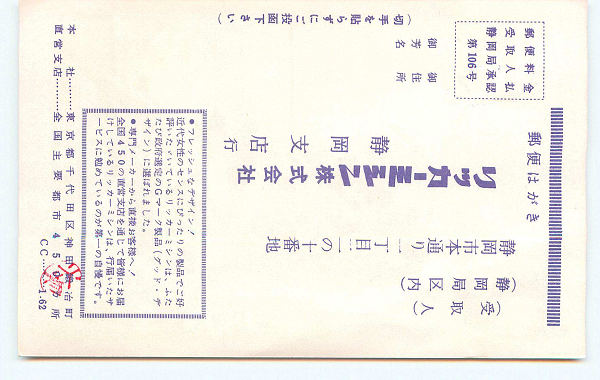 郵便はがき
郵便料金
受取人払
静岡局承認
第106号
(受取人)
(静岡局区内)
静岡市本通り一丁目一の十番地
リッカーミシン株式会社
静岡支店 行
御住所
御芳名
(切手を貼らずにご投函下さい)
●フレッシュなデザイン!
近代女性のセンスにぴったりの製品でご好
評いたゞいているリッカーミシンは、ふた
たび政府選定のGマーク製品(グッド・デ
ザイン)に選ばれました。
●専門メーカーから直接お客様へ!
全国450の直営支店を通じて皆様にお届
けしているリッカーミシンは、行届いたサ
ービスに勉めているのが第一の自慢です。
本社……東京都千代田区神田鍛治町
直営支店……全国主要都市450カ所
C.C.
1.62